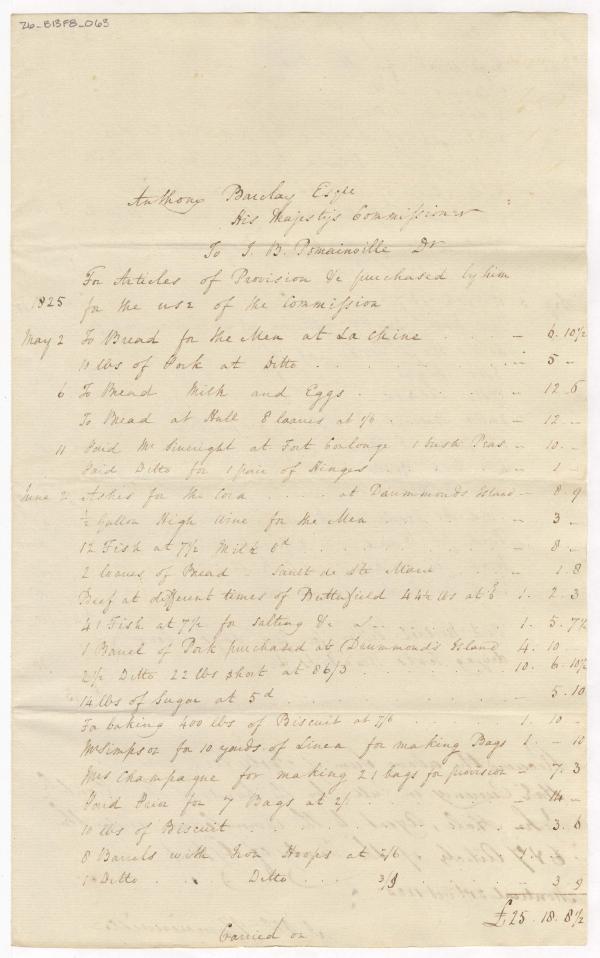 26-B13F8_063
Anthony Barclay Esqre
His Majesty's Commissioner
To J. B. Pomainville Dr
For Articles of Provision &c purchased by him
1825 for the use of the Commission
May 2 To Bread for the Men at La Chine . . - 6. 10½
10 lbs of Pork at Ditto . . . . 5 -
6 To Bread Milk and Eggs . . . . - 12. 6
To Bread at Hull 8 loaves at 1/6 . . . - 12 -
11 Paid Mr at Fort Coulonge 1 bush Peas - 10. -
Paid Ditto for 1 pair of Hinges . . . . - 1 -
June 2 Ashes for the Corn . . . . at Drummonds Island - 8. 9
½ Gallon High Wine for the Men . . . . - 3 -
12 Fish at 7½ Milk 6d . . . . - 8 -
2 loaves of Bread - Sault de Ste Marie . . - 1. 8
Beef at different times of Butterfield 44½ lbs at 6 1. 2. 3
41 Fish at 7½ for salting &c . . . 1. 5. 7½
1 Barrel of Pork purchased at Drummond's Island 4. 10 -
2½ Ditto 22 lbs short at 86/3 . . . 10. 6. 10½
14 lbs of Sugar at 5d . . . . 5. 10
For baking 400 lbs of Biscuit at 7/6 . . . 1. 10 -
Mr Simpson for 10 yards of Linen for making Bags 1. - 10
Mrs Champagne for making 21 bags for provision - 7. 3
Paid for 7 Bags at 2/ . . . - 14 -
10 lbs of Biscuit . . . . 3. 6
8 Barrels with Iron Hoops at /6
1 Ditto . . Ditto . . . 3/9 . . . - 3. 9
£25. 18. 8½
Carried on